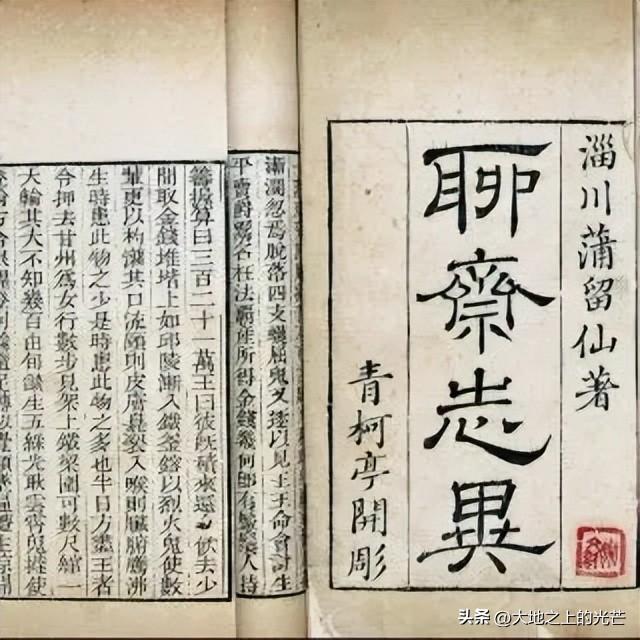 淄川蒲留仙著
聊齋志異
青柯亭開彫
漸濶忽焉脫落四支蜷屈鬼又逐以見王王命會計生
平賣爵鬻名枉法霸産所得金錢幾何即有鬡鬚人持
籌握算曰三百二十一萬王曰彼旣積來還令飲去少
間取金錢堆堦上如邱陵漸入鐵釜鎔以烈火鬼使數
輩更以杓灌其口流頤則皮膚臭裂入喉則臟腑騰沸
生時患此物之少是時患此物之多也半日方盡王者
令押去甘州爲女行數步見架上鐵梁圍可數尺綰一
火輪其大不知幾百由旬燄生五綵光耿雲霄鬼撻使
头条 @大地之上的光芒